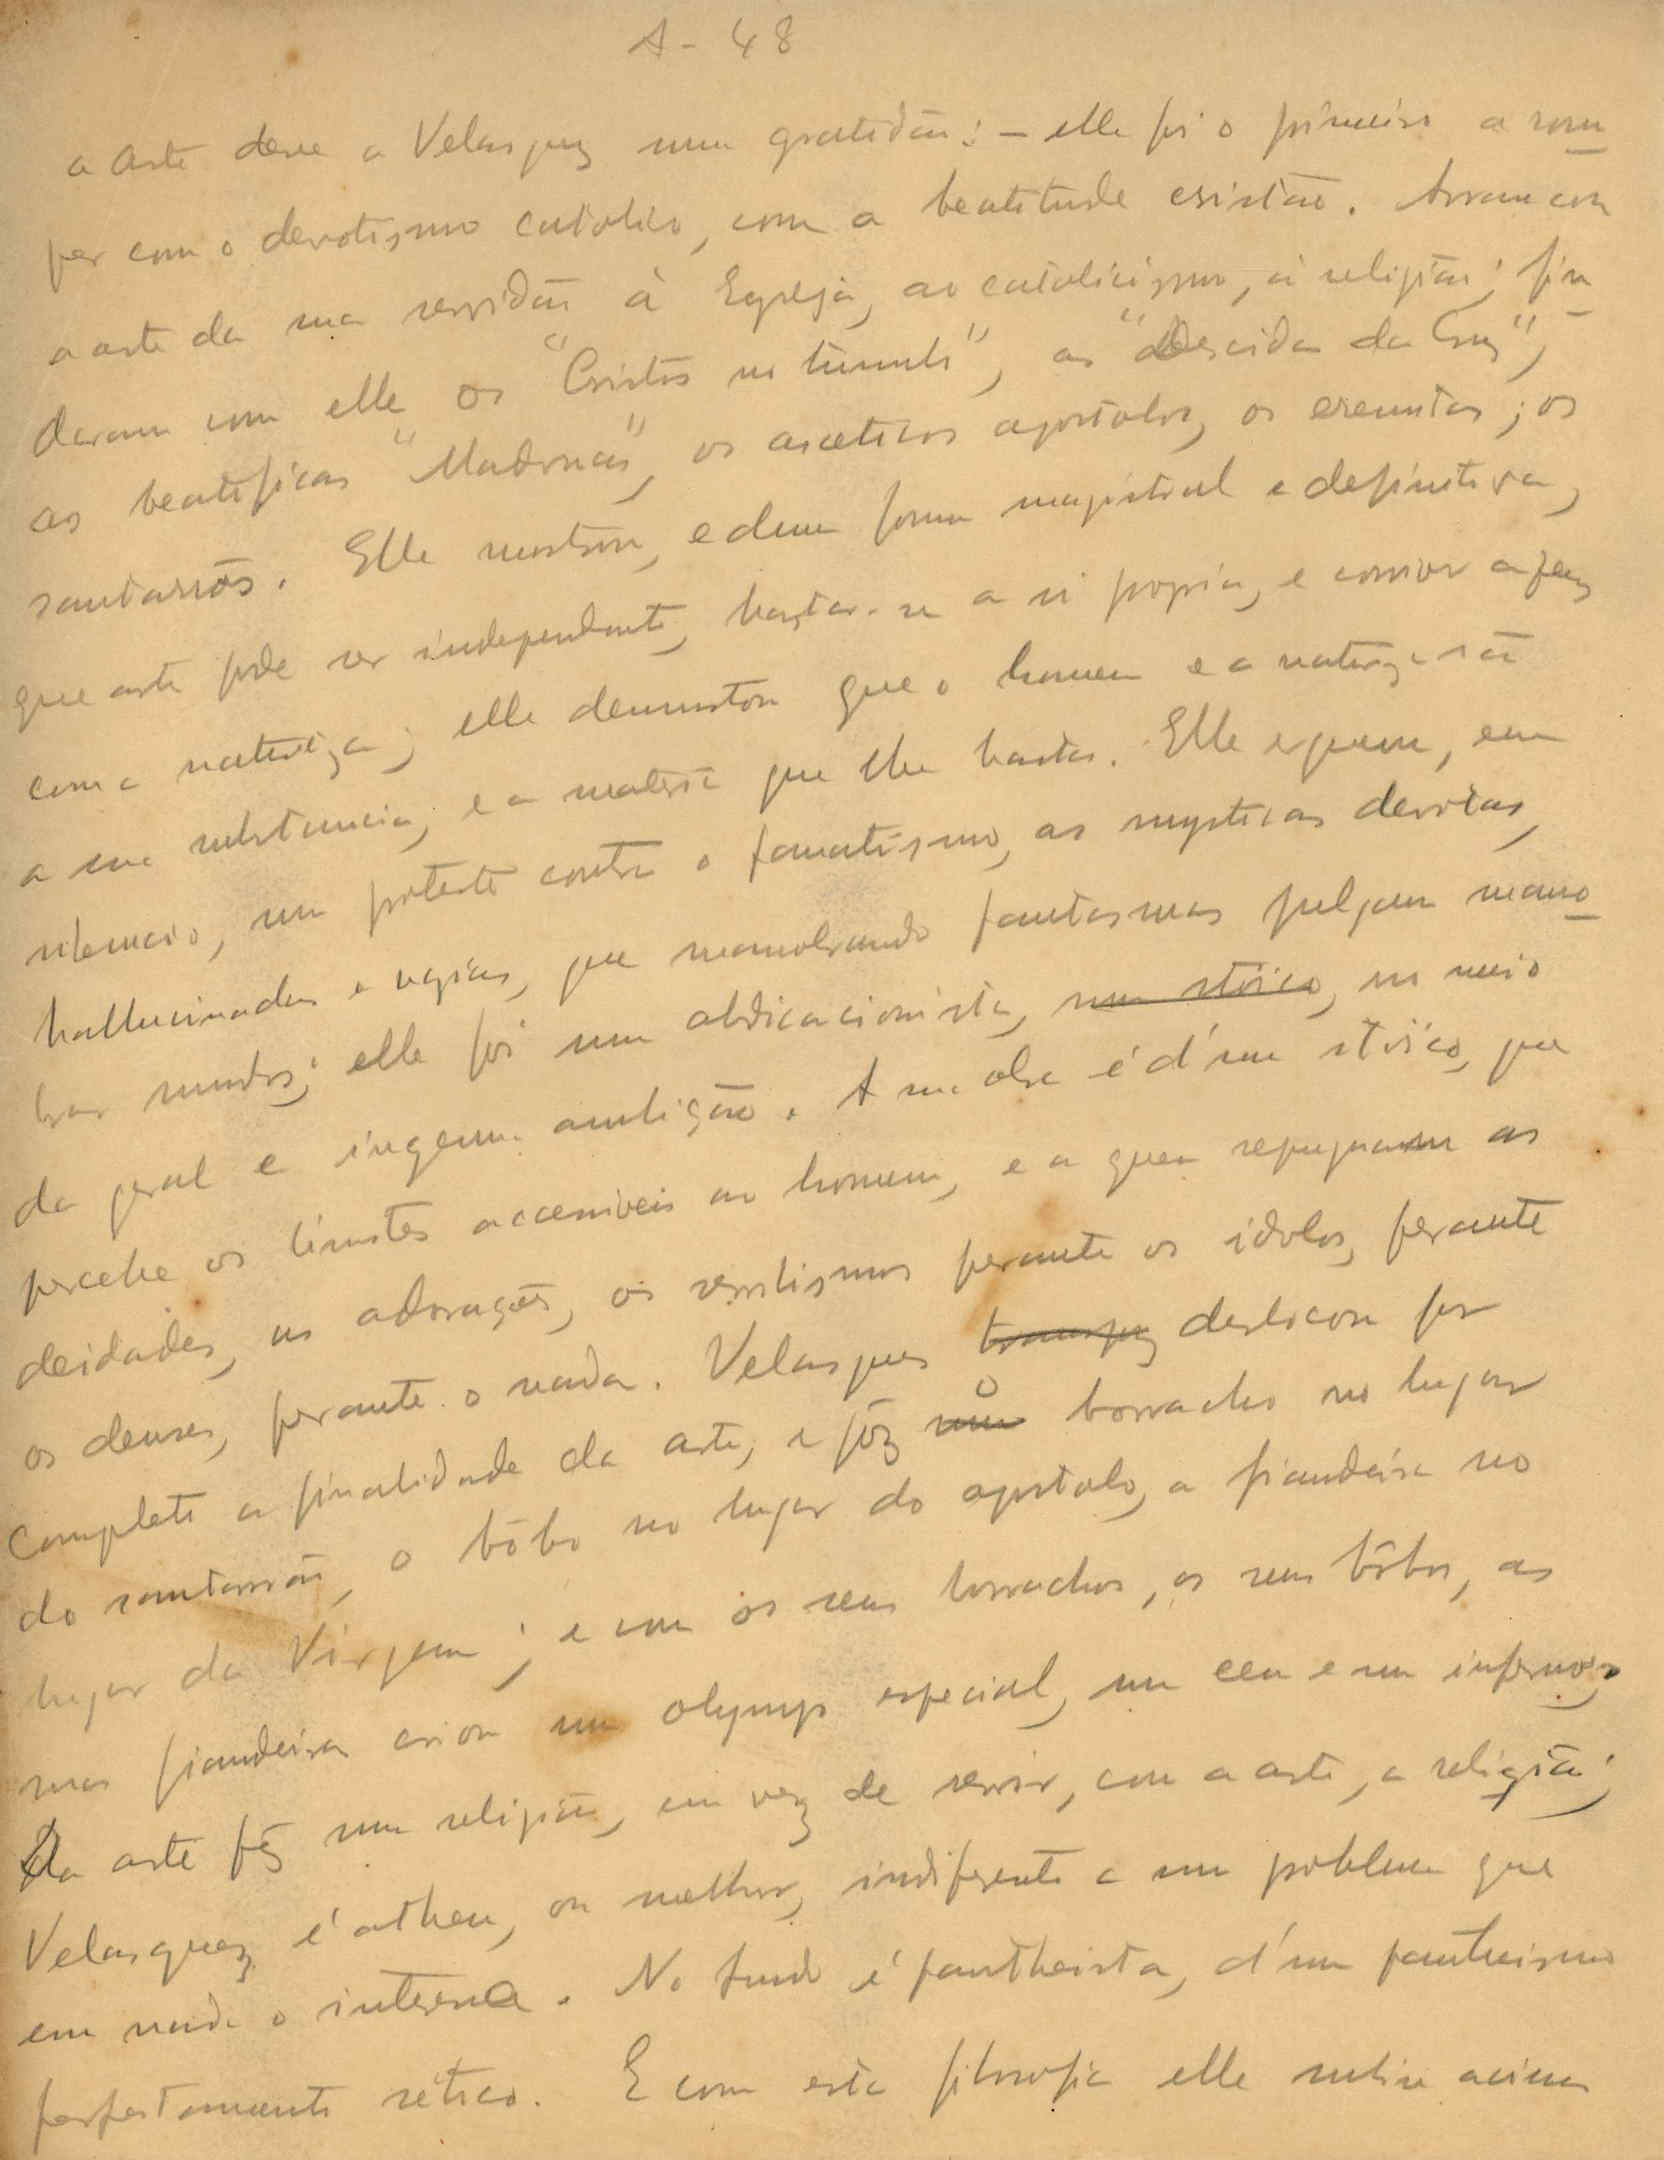 A - 48
a arte deve a Velasquez uma gratidão: - elle foi o primeiro a rom
per com o devotismo catolico, com a beatitude cristão. Arrancou
a arte da sua servidão à Egreja, ao catolicismo, à religião; fin
daram com elle os "Cristos no tumulo", as "Descidas da Cruz",
as beatificas "Madonas", os asceticos apostolos, os eremitas; os
santarrões. Elle mostrou, e deu forma magistral e definitiva,
que arte pode ser independente, bastar-se a si propria, e comvosco
com a natureza; elle demonstrou que o homem e a natureza são
a sua substancia, e a materia que lhe basta. Elle ergueu, em
silencio, um protesto contra o fanatismo, as mysticas devotas,
hallucinadas e vagias, que manobrando fantasmas julgam mano
brar mundos; elle foi um abdicacionista, um stoico, no meio
da geral e ingenua ambição. A sua obra é d'um stoïco, que
percebe os limites accessiveis ao homem, e a quem repugnam as
deidades, as adorações, os servilismos perante os idolos, perante
os deuses, perante o nada. Velasques transpoz deslocou por
completo a finalidade da arte, e pôz um o borracho no lugar
do santarrão, o bôbo no lugar do apostolo, a fiandeira no
lugar da Virgem; e com os seus borrachos, os seus bôbos, as
suas fiandeiras criou um olympo especial, um ceu e um inferno;
Da arte fêz uma religião, em vez de servir, com a arte, a religião;
Velasquez é atheu, ou melhor, indiferente a um problema que
em nada o interessa. No fundo é pantheista, d'um pantheismo
perfeitamente sético. E com esta filosofia elle subiu acima